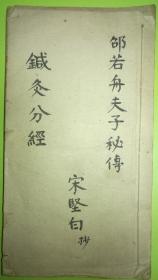 邵若舟夫子秘傳
鍼灸分經
宋堅白抄